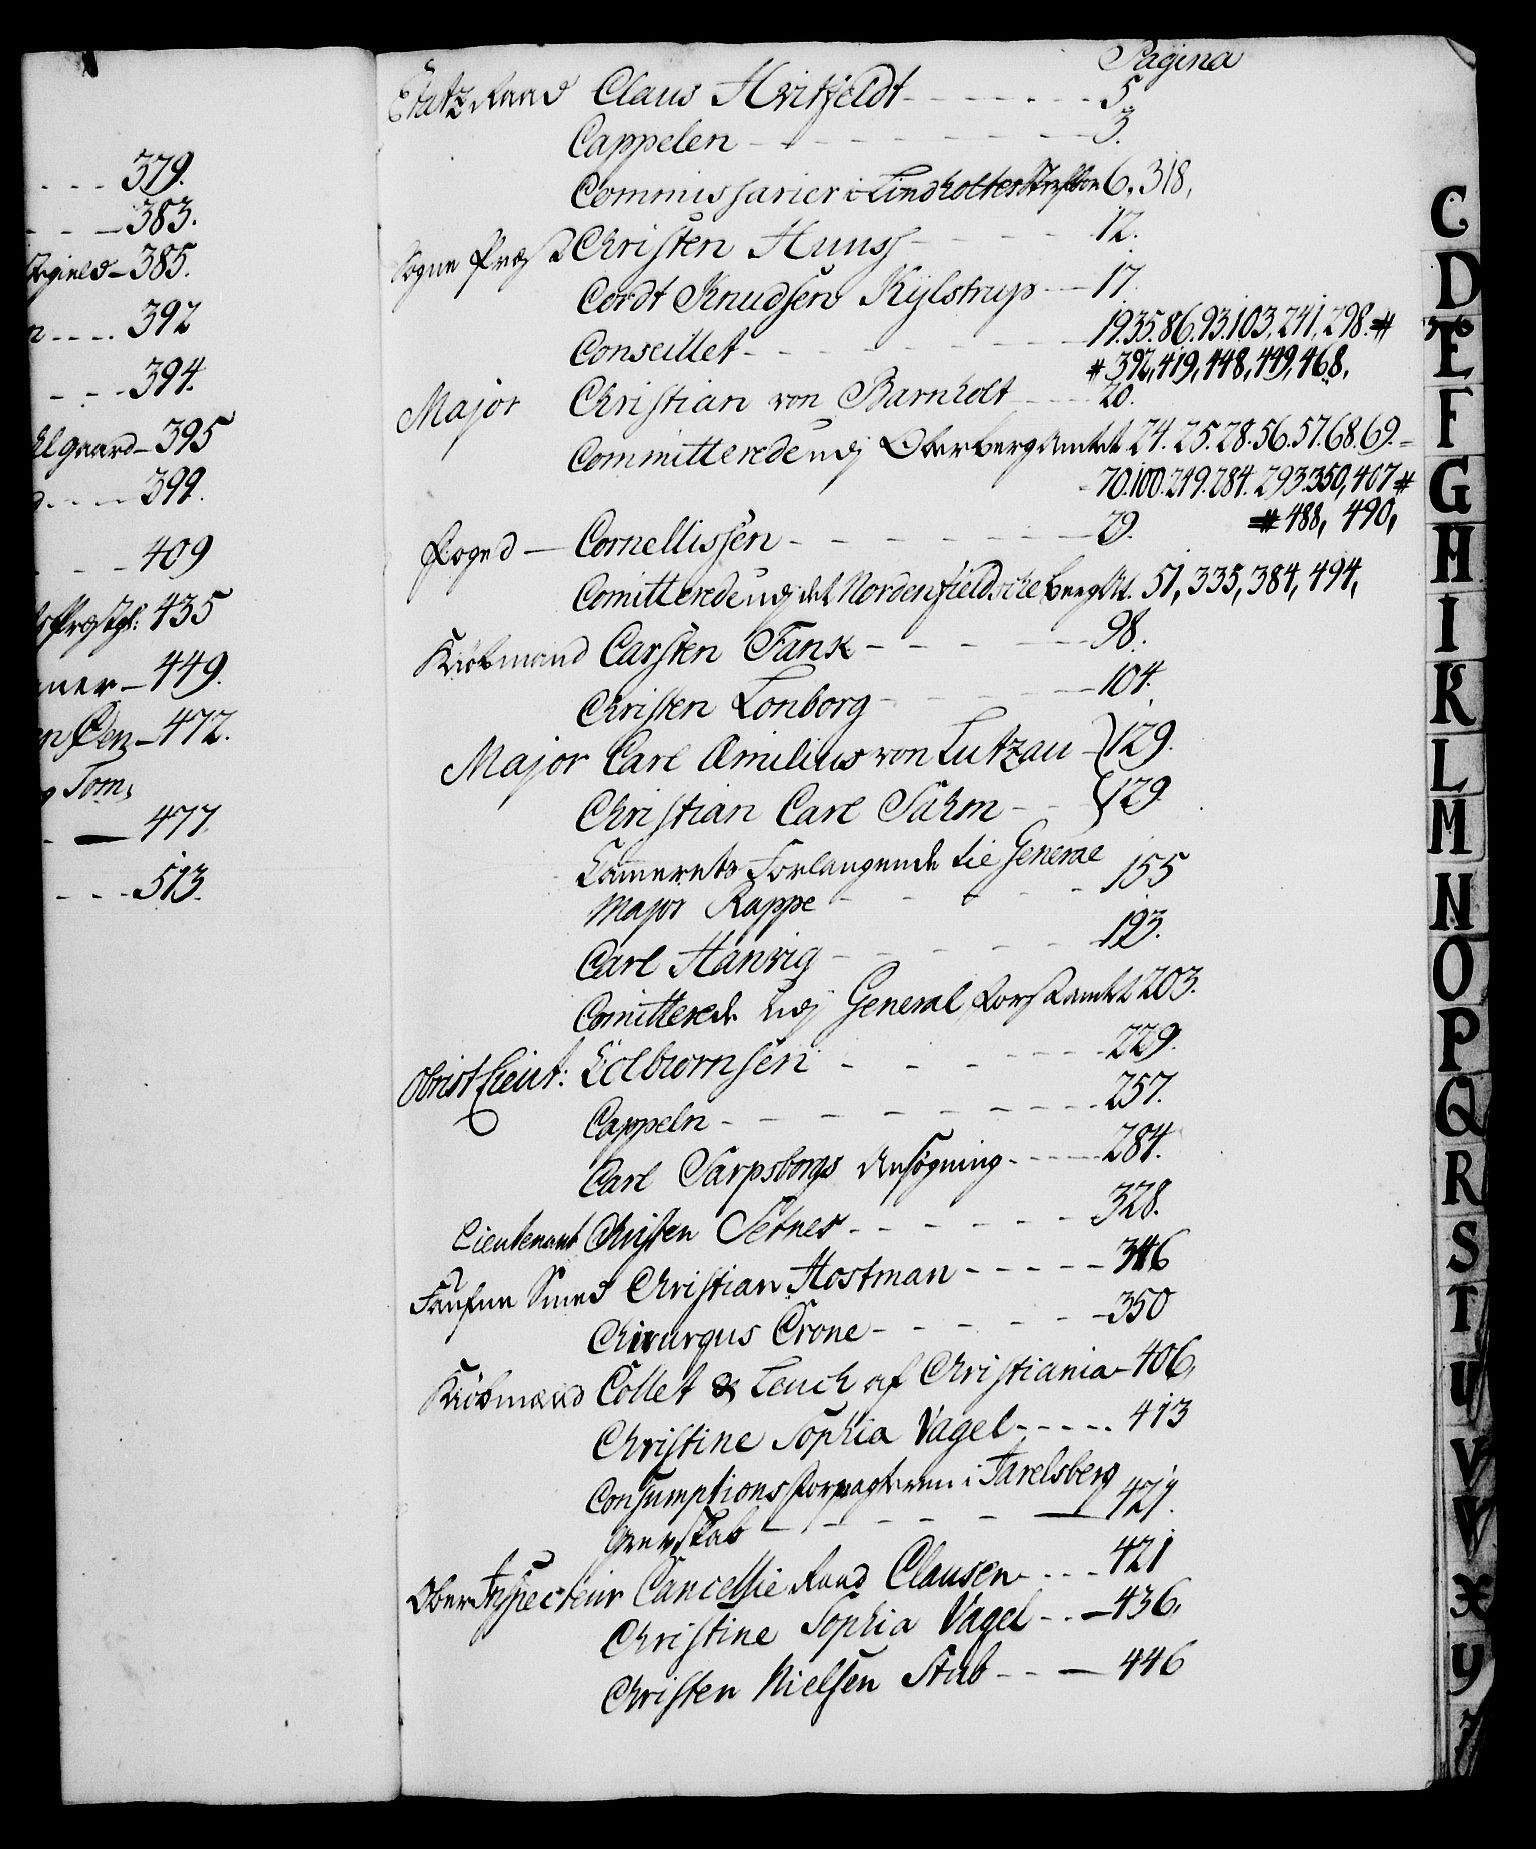 379.
383.
gield - 385.
n .... 392
394.
Elgaard - 395
399.
409
Præstgl: 435
ner - 449.
472.
Tom,
477.
513.
Pagina
Etatz Raad Claus Hvitfeldt - - - 5.
Cappelen - - - 3.
Commissarier i 6, 318,
Sogne Præst Christen Huusf - - - 12.
Cordt Knudsen Kÿlstrup - - 17.
Conseillet - - - 19.35.86.93.103.241.298.#
# 392,419,448,449,468.
Major Christian von Barnholt - - - 20.
Committerede udj Oberbergamtet 24. 25. 28. 56. 57. 68. 69. -
70. 100. 249. 284. 293. 350, 407 #
# 488, 490,
Foged - Cornellissen - - - 29.
Comitterede udj det Nordenfieldsche bergAt. 51, 335, 384, 494,
Kiøbmand Carsten Tank - - - 98.
Christen Lonborg - - - 104.
Major Carl Æmilius von Lutzau - } 129.
Christian Carl Sühm - - } 129
Kammerets Forlangende til General
Major Rappe - - - 155
Carl Hanvig - - - 193.
Comitterede udj General Forstamtet 203.
Obrist Lieut: Colbiørnsen - - - 229.
Cappeln - - - 257.
Carl Sarpsborgs Ansøgning - - - 284.
Lieutenant Christen Setner - - - 328.
Smed Christian Hostman - - - 346
Chirurgus Crone - - - 350
Kiøbmænd Collet & Leuch af Christiania - 406,
Christine Sophia Vagel - - - 413
Consumptions Forpagteren i Jarelsberg
Grevskab - - - 421.
Ober Inspecteur Cancellie Raad Clausen - - - 421
Christine Sophia Vagel - - - 436.
Christen Nielsen Stub - - - 446
C
D
E
F
G
H
I
K
L
M
N
O
P
Q
R
S
T
U
V
W
X
Y